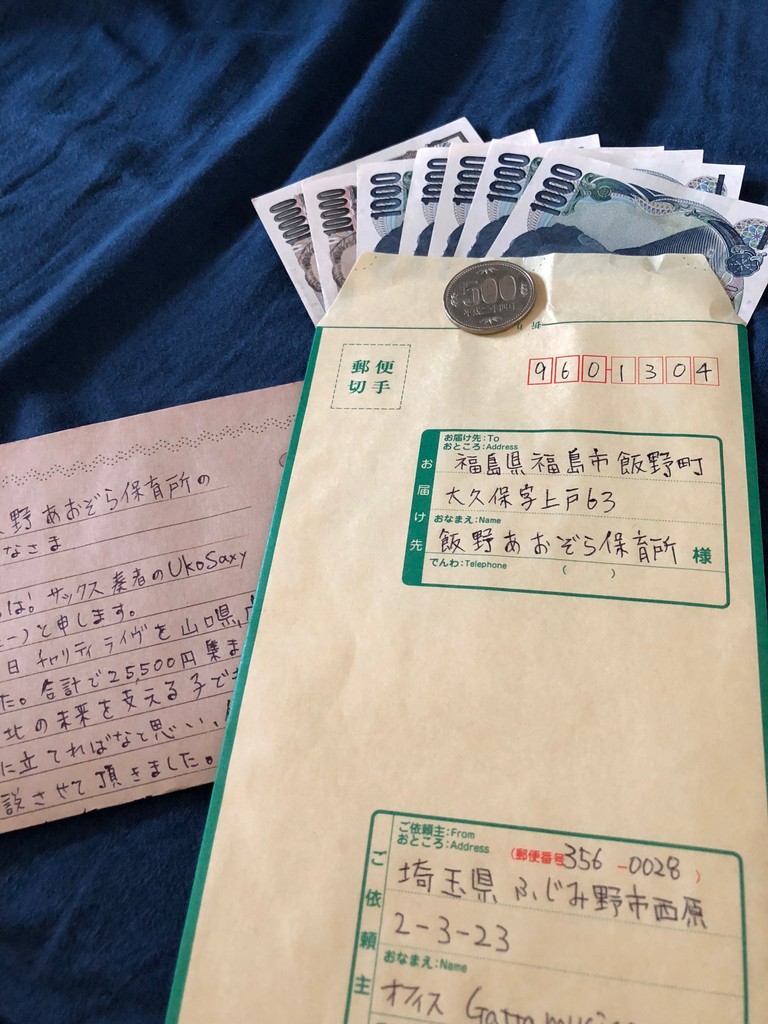 1000
1000
1000
1000
1000
1000
1000
500
郵便
切手
9601304
お届け先:To
おところ:Address
お届け先
福島県福島市飯野町
大久保字上戸63
おなまえ:Name
飯野あおぞら保育所 様
でんわ:Telephone
( )
ご依頼主:From
おところ:Address
(郵便番号356-0028)
ご依頼主
埼玉県ふじみ野市西原
2-3-23
おなまえ:Name
オフィス Gatto
野あおぞら保育所の
なさま
は! サックス奏者のUkoSaxy
ー)と申します。
日 チャリティライヴを山口県
た。合計で25,500円集ま
北の未来を支える子ども
に立てればなと思い、
説させて頂きました。